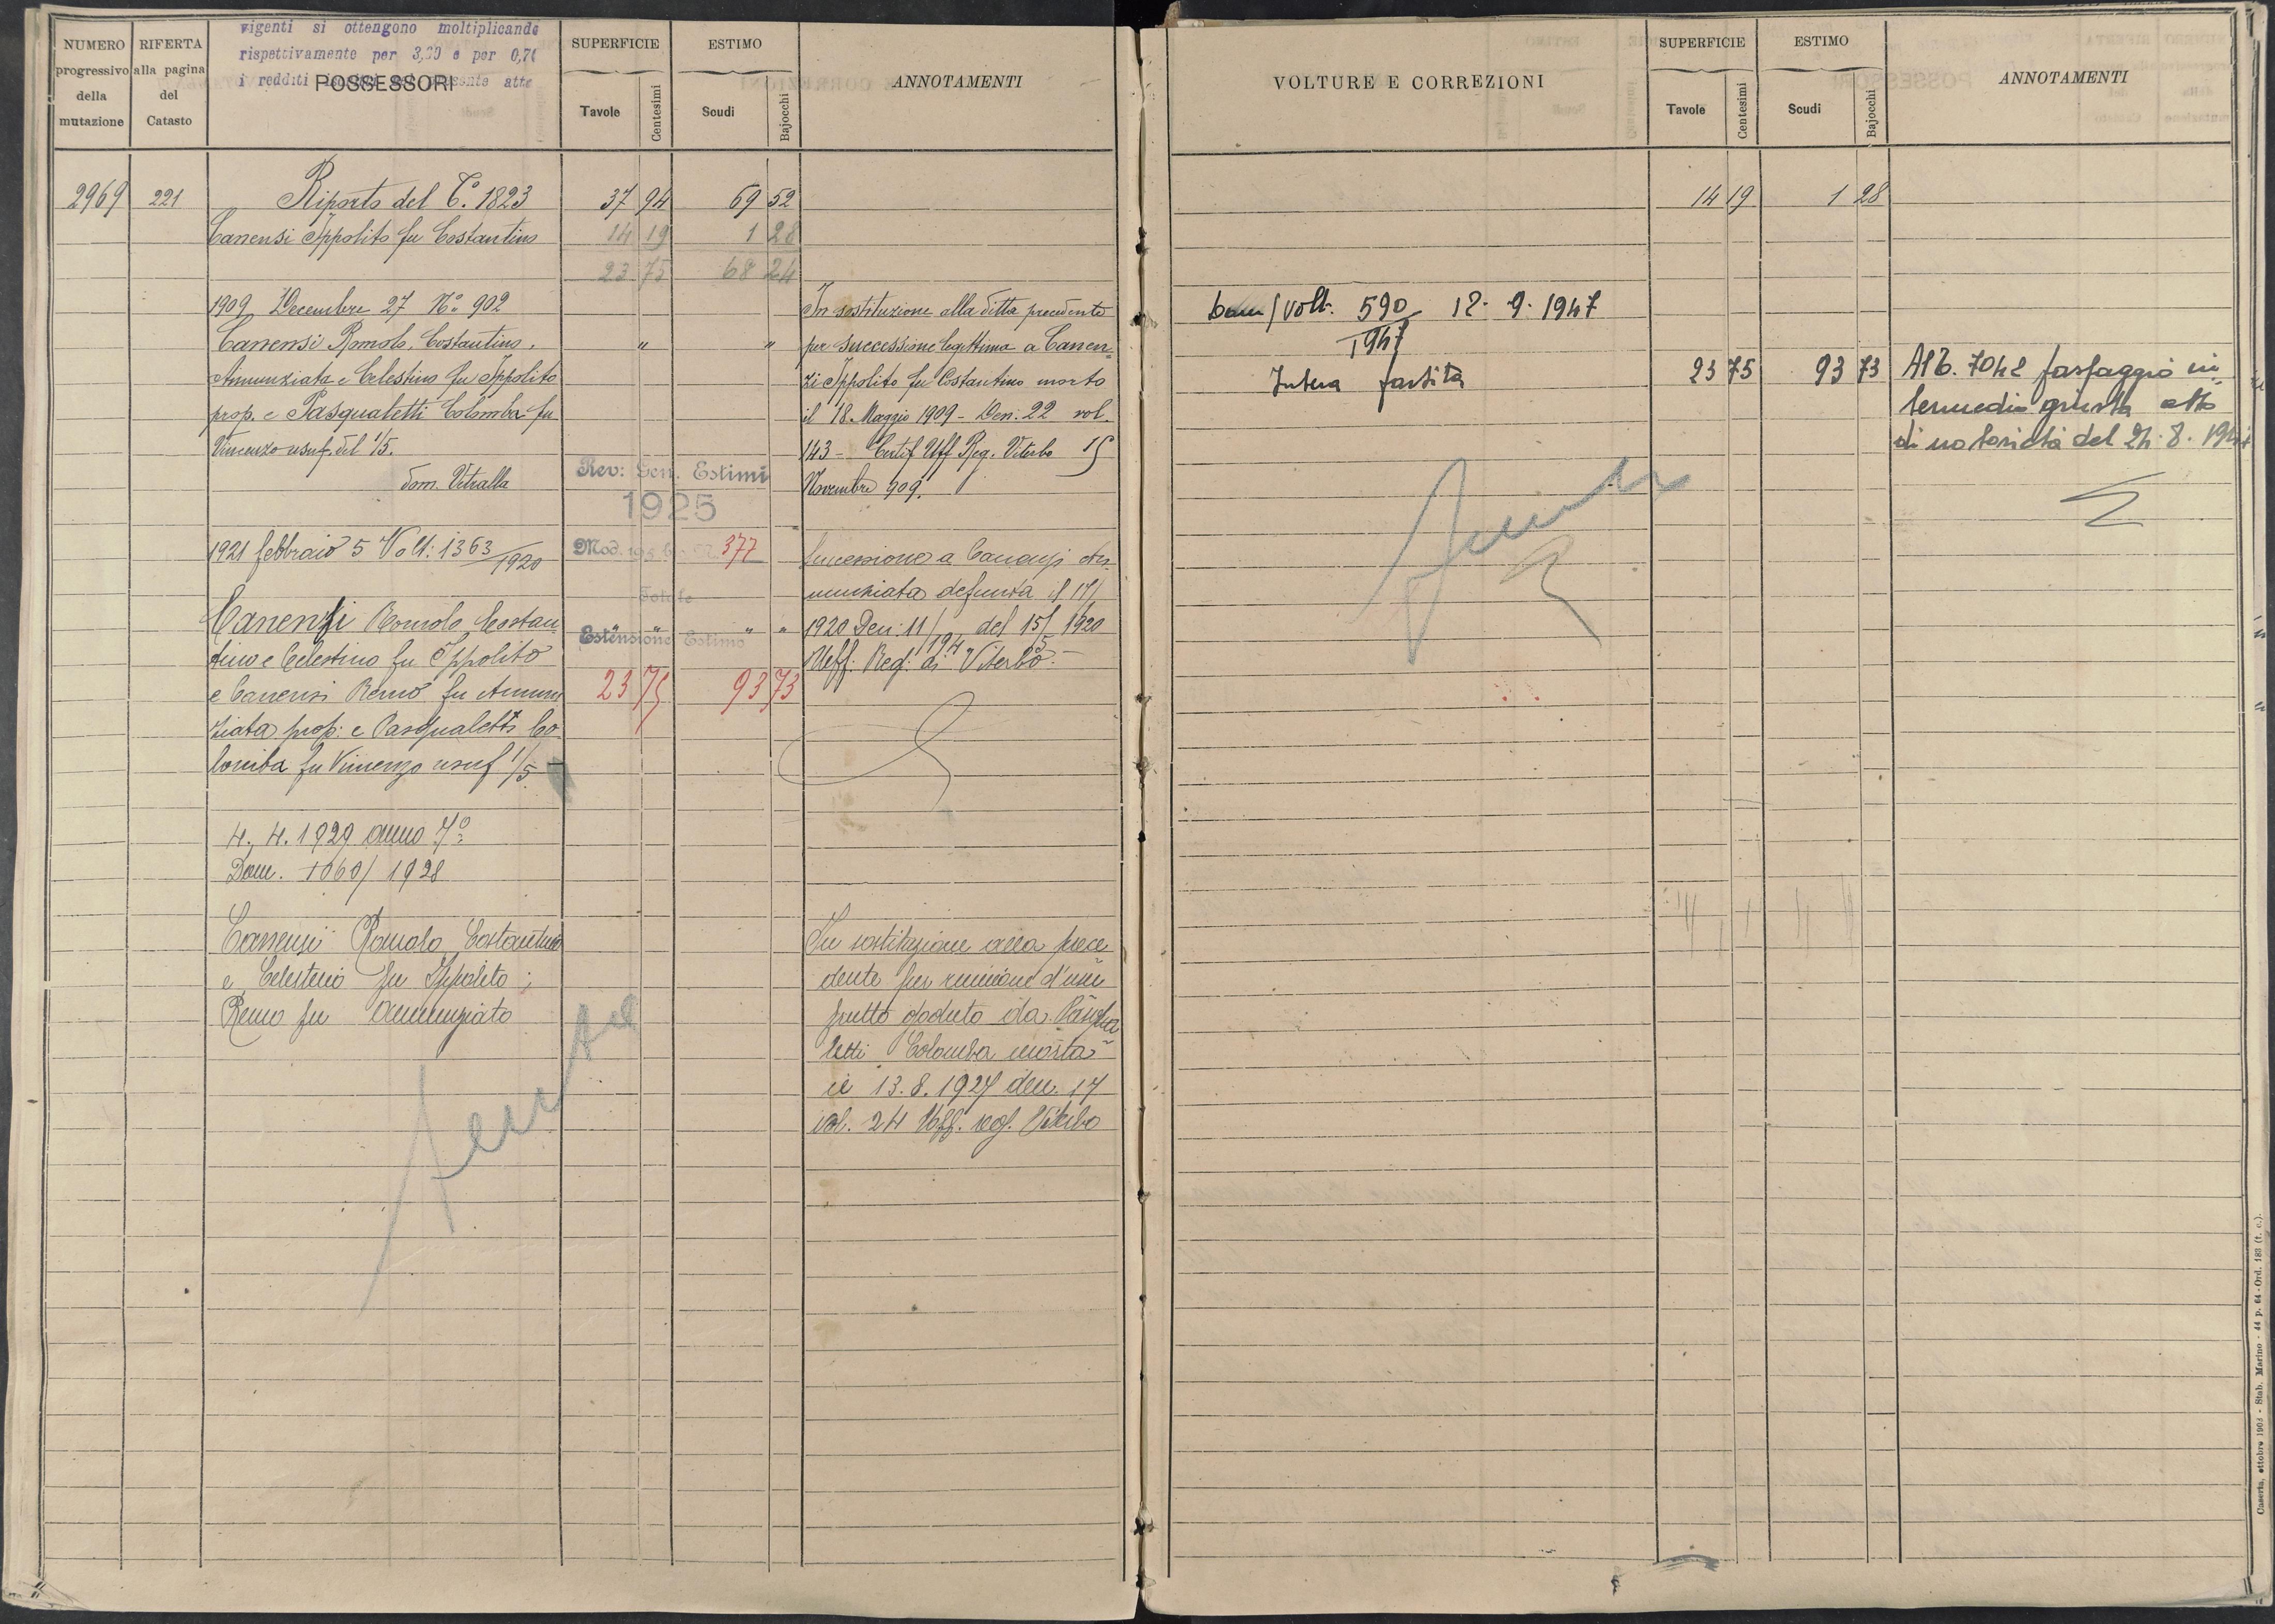 vigenti si ottengono moltiplicando
rispettivamente per 3,20 e per 0,70
i redditi presente atto
NUMERO progressivo della mutazione
RIFERTA alla pagina del Catasto
POSSESSORI
SUPERFICIE
Tavole
Centesimi
ESTIMO
Scudi
Bajocchi
ANNOTAMENTI
2969 221 Riporto del C. 1823 37 94 69 52
Canensi Ippolito fu Costantino 14 19 1 28
23 75 68 24
1909 Decembre 27 N.º 902
Canensi Romolo, Costantino,
Annunziata e Celestino fu Ippolito
prop. e Pasqualetti Colomba fu
Vincenzo usuf. del 1/5.
dom. Vetralla
" "
In sostituzione alla ditta precedente
per successione legittima a Canen=
zi Ippolito fu Costantino morto
il 18 Maggio 1909 - Den. 22 vol.
143 - Certif Uff Reg. Viterbo 15
Novembre 909.
Rev: Gen. Estimi
1925
Mod. 377
Totale
Estensione Estimo
23 75 93 73
1921 febbraio 5 Volt: 1363/1920
Canensi Romolo Costan
tino e Celestino fu Ippolito
e Canensi Remo fu Annun
ziata prop: e Pasqualetti Co
lomba fu Vincenzo usuf 1/5
" " " "
Successione a Canensi An
nunziata defunta il
1920 Den: 11/194 del 15/5 1920
Uff. Reg: di Viterbo.
4. 4. 1929 anno 7º
Dom. 1060/1928
Canensi Romolo Costantino
e Celestino fu Ippolito;
Remo fu Annunziata
In sostituzione alla prece
dente per riunione d'usu
frutto goduto da Pasqua
letti Colomba morta
il 13.8.1927 den. 17
vol. 24 Uff. reg. Viterbo
VOLTURE E CORREZIONI
SUPERFICIE
Tavole
Centesimi
ESTIMO
Scudi
Bajocchi
ANNOTAMENTI
14 19 1 28
Dom/Volt. 590/1947 12.9.1947
Intera partita 23 75 93 73
Al C. 7042 passaggio in
termedio giusta atto
di notorietà del 24.8.
Caserta, ottobre 1903 - Stab. Marino - 44 p. 64 - Ord. 183 (t. c.).